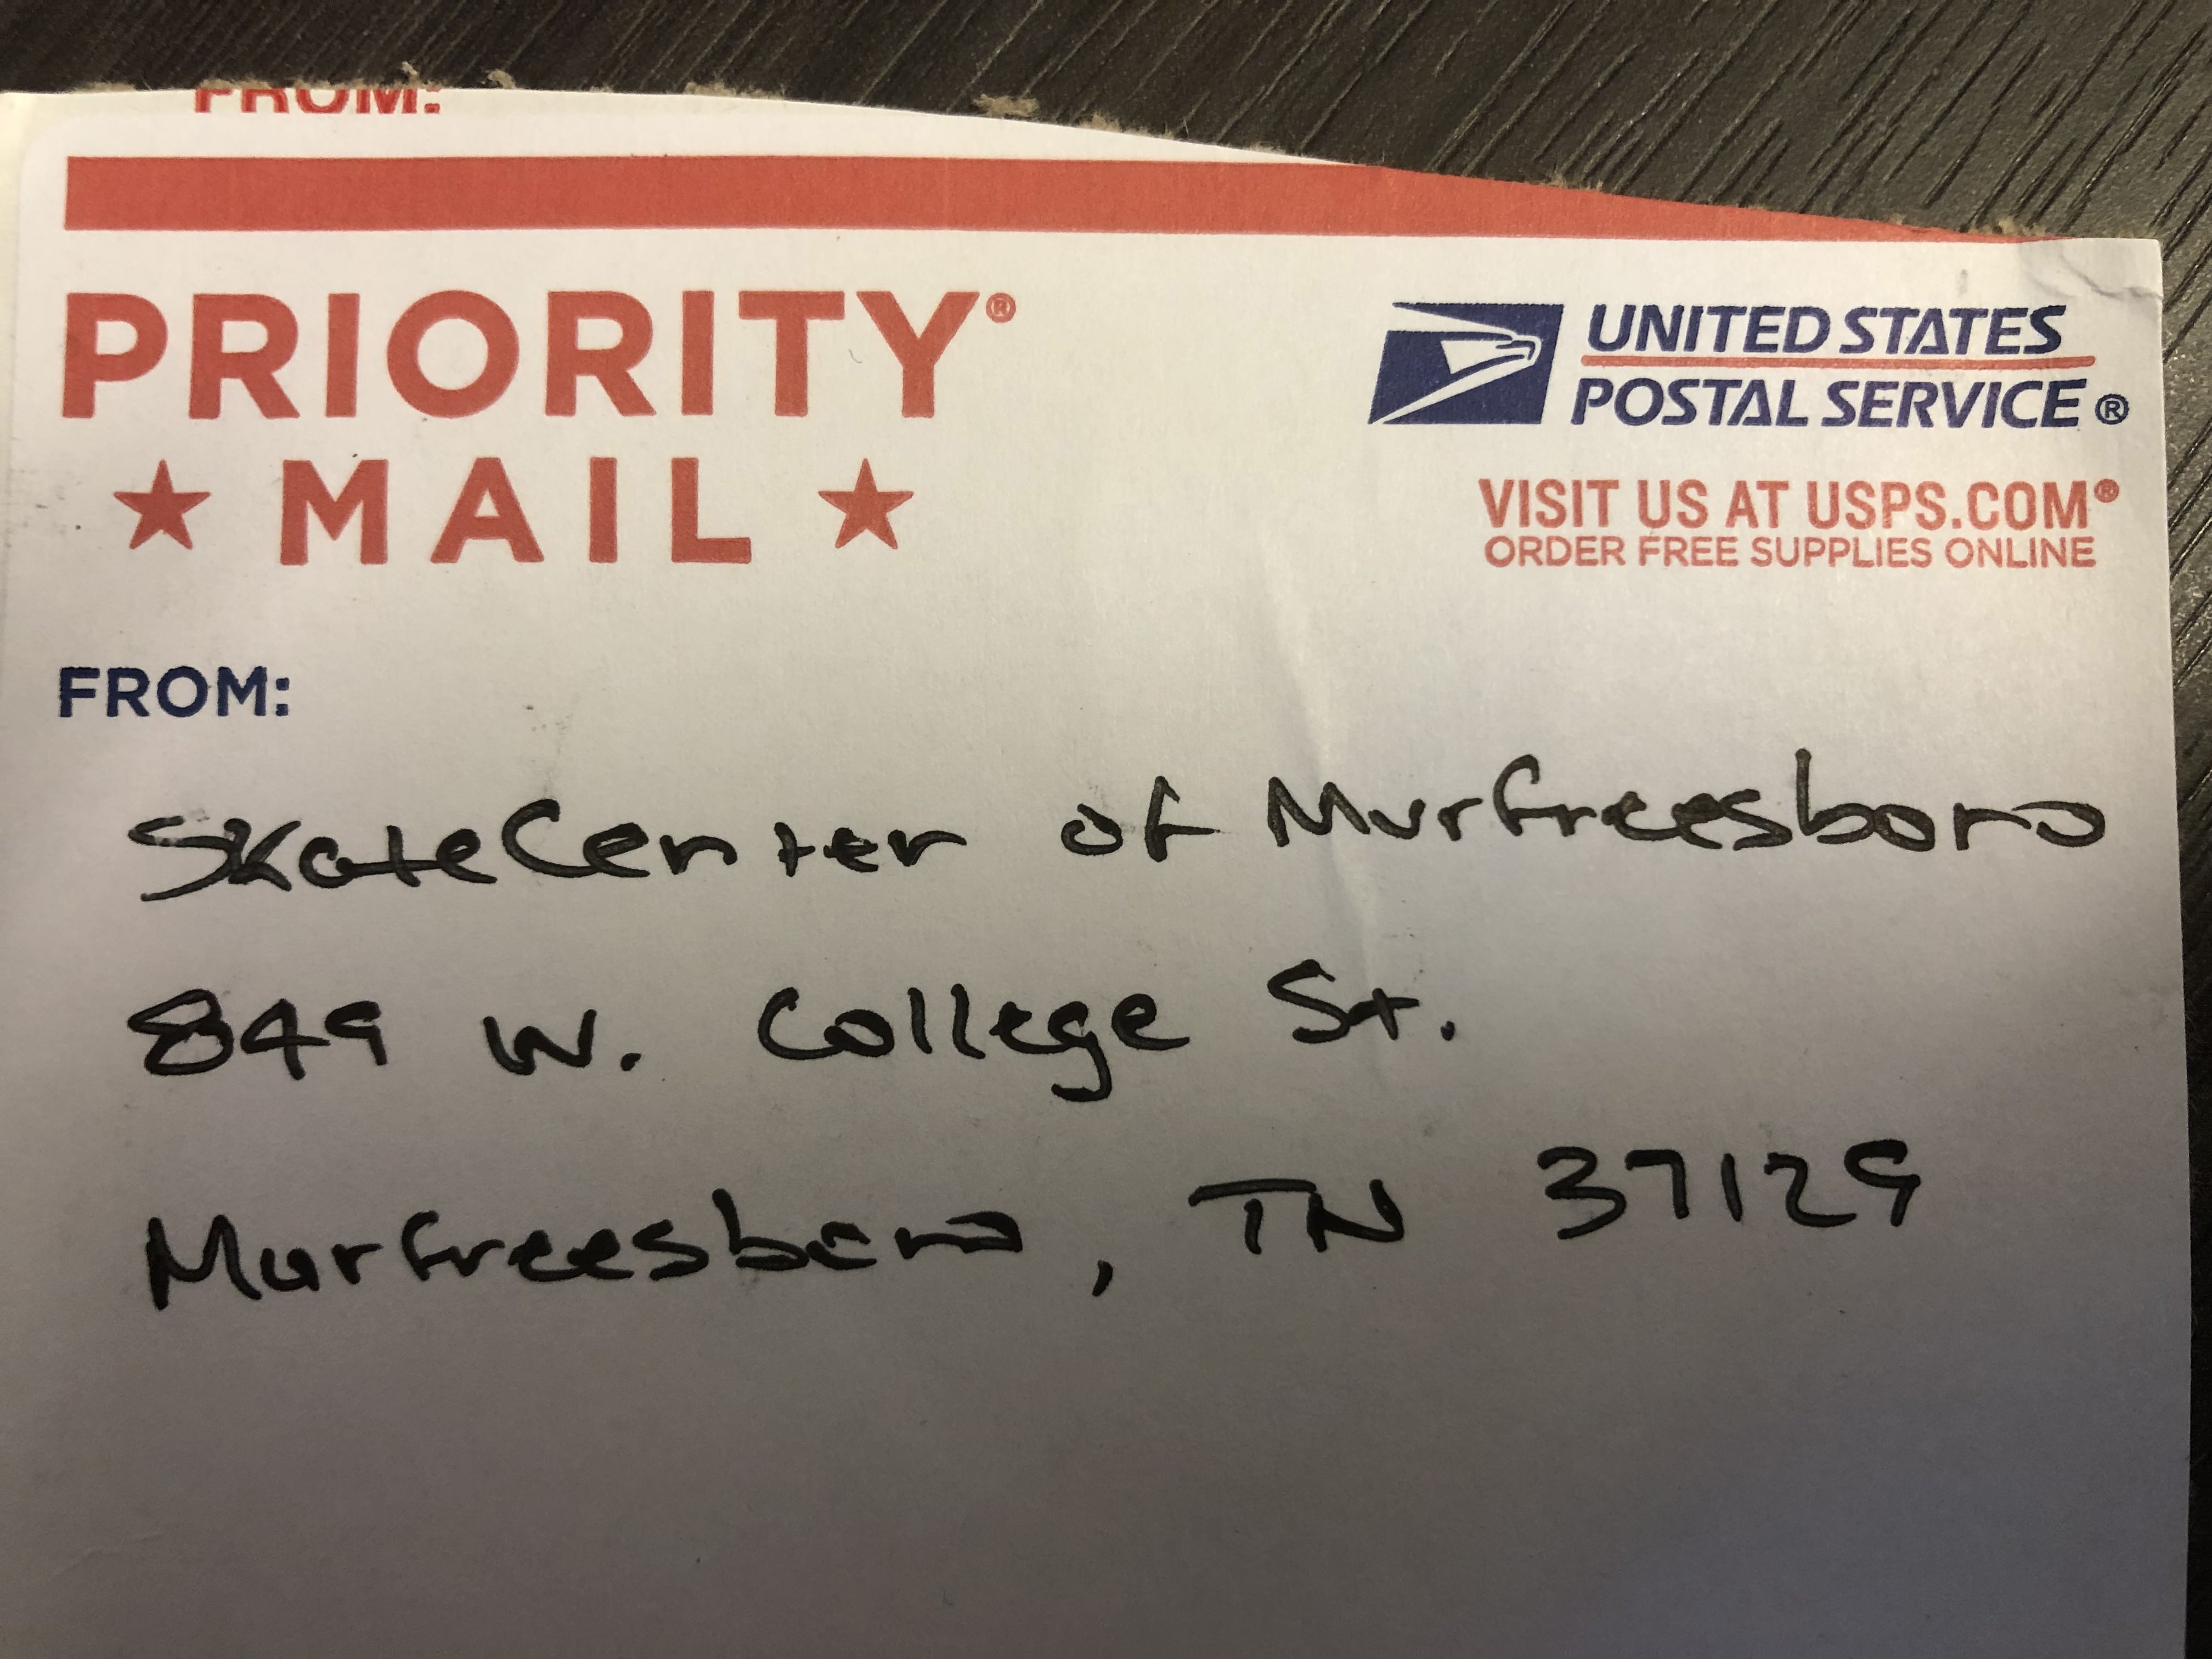 FROM:
PRIORITY®
★ MAIL ★
UNITED STATES
POSTAL SERVICE®
VISIT US AT USPS.COM®
ORDER FREE SUPPLIES ONLINE
FROM:
SkateCenter of Murfreesboro
849 W. College St.
Murfreesboro, TN 37129